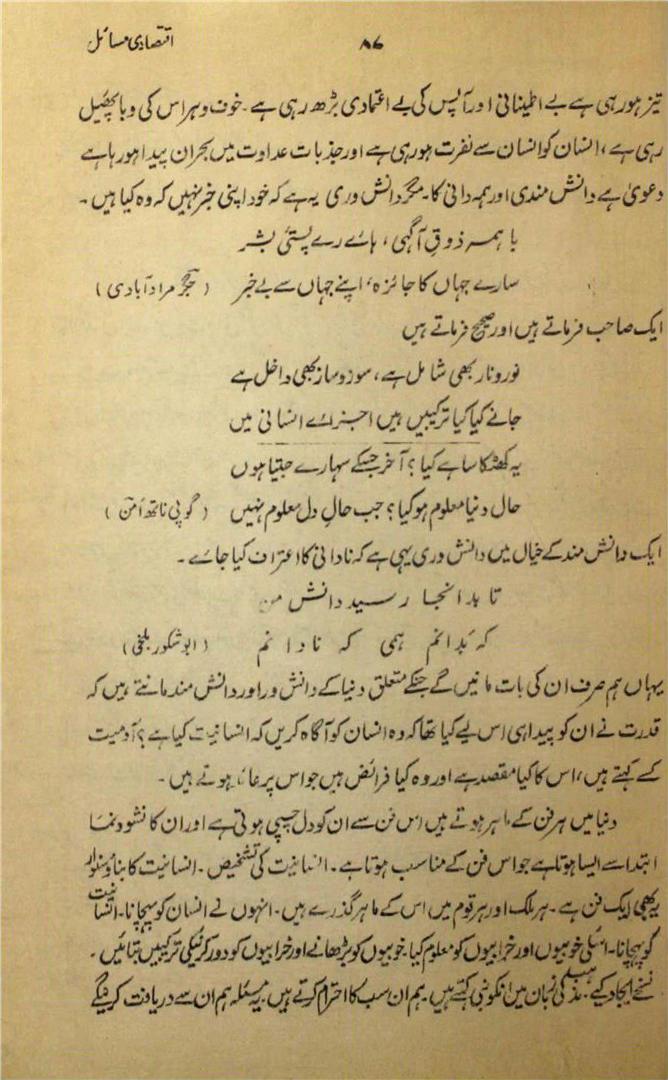 اقتصادی مسائل
۸۷
تیز ہو رہی ہے بے اطمینانی اور آپس کی بے اعتمادی بڑھ رہی ہے۔ خوف وہراس کی وبا پھیل
رہی ہے، انسان کو انسان سے نفرت ہو رہی ہے اور جذبات عداوت میں بحران پیدا ہو رہا ہے
دعویٰ ہے دانش مندی اور ہمہ دانی کا۔ مگر دانش وری یہ ہے کہ خود اپنی خبر نہیں کہ وہ کیا ہیں۔
با ہمہ ذوقِ آگہی، ہائے رے پستیٔ بشر
سارے جہاں کا جائزہ، اپنے جہاں سے بے خبر (جگر مرادآبادی)
ایک صاحب فرماتے ہیں اور صحیح فرماتے ہیں
نور و نار بھی شامل ہے، سوز و ساز بھی داخل ہے
جانے کیا کیا ترکیبیں ہیں اجزائے انسانی میں
یہ کھٹکا سا ہے کیا؟ آخر جسکے سہارے جیتا ہوں
حال دنیا معلوم ہو کیا؟ جب حالِ دل معلوم نہیں (گوپی ناتھ امن)
ایک دانش مند کے خیال میں دانش وری یہی ہے کہ نادانی کا اعتراف کیا جائے۔
تا بدانجا رسید دانش من
کہ بدانم ہمی کہ نادانم (ابو شکور بلخی)
یہاں ہم صرف ان کی بات مانیں گے جنکے متعلق دنیا کے دانش ور اور دانش مند مانتے ہیں کہ
قدرت نے ان کو پیدا ہی اس لیے کیا تھا کہ وہ انسان کو آگاہ کریں کہ انسانیت کیا ہے؟ آدمیت
کسے کہتے ہیں، اس کا کیا مقصد ہے اور وہ کیا فرائض ہیں جو اس پر عائد ہوتے ہیں۔
دنیا میں ہر فن کے ماہر ہوتے ہیں اس فن سے ان کو دل چسپی ہوتی ہے اور ان کا نشوونما
ابتدا سے ایسا ہوتا ہے جو اس فن کے مناسب ہوتا ہے۔ انسانیت کی تشخیص۔ انسانیت کا بناؤ سنوار
بھی ایک فن ہے۔ ہر ملک اور ہر قوم میں اس کے ماہر گذرے ہیں۔ انہوں نے انسان کو پہچانا۔ انسانیت
کو پہچانا۔ اسکی خوبیوں اور خرابیوں کو معلوم کیا خوبیوں کو بڑھانے اور خرابیوں کو دور کرنیکی ترکیبیں بتائیں۔
نسخے ایجاد کیے۔ مذہب کی زبان میں انکو نبی کہتے ہیں۔ ہم ان سب کا احترام کرتے ہیں۔ یہ مسئلہ ہم ان سے دریافت کرینگے